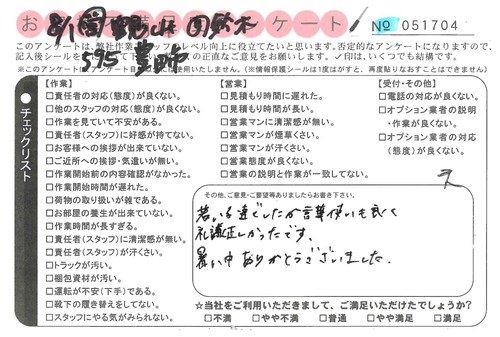 お
ケート!
No 051704
8/1
595
このアンケートは、弊社作業
レベル向上に役立てたいと思います。否定的なアンケートになりますので、
記入後シールを
の正直なご意見をお願いします。✓印は、いくつでも結構です。
※このアンケート
使用いたしません。(※情報保護シールは1度はがすと、再度貼りなおすことはできません)
チェックリスト
【作業】
□責任者の対応(態度)が良くない。
□他のスタッフの対応(態度)が良くない。
□作業を見ていて不安がある。
□責任者(スタッフ)に好感が持てない。
□お客様への挨拶が出来ていない。
□ご近所への挨拶・気遣いが無い。
□作業開始前の内容確認がなかった。
□作業開始時間が遅れた。
□荷物の取り扱いが雑である。
□お部屋の養生が出来ていない。
□作業時間が長すぎる。
□責任者(スタッフ)に清潔感が無い。
□責任者(スタッフ)が汗くさい。
□トラックが汚い。
□梱包資材が汚い。
□運転が不安(下手)である。
□靴下の履き替えをしてない。
□スタッフにやる気がみられない。
【営業】
□見積もり時間に遅れた。
□見積もり時間が長い。
□営業マンに清潔感が無い。
□営業マンが煙草くさい。
□営業マンが汗くさい。
□営業態度が良くない。
□営業の説明と作業が一致してない。
【受付・その他】
□電話の対応が良くない。
□オプション業者の説明
・作業が良くない。
□オプション業者の対応
(態度)が良くない。
その他、ご意見・ご要望等ありましたらお書き下さい。
若い子達でしたが言葉使いも良く
礼儀正しかったです。
暑い中ありがとうございました。
☆当社をご利用いただきまして、ご満足いただけたでしょうか?
□不満 □やや不満 □普通 □やや満足 □満足